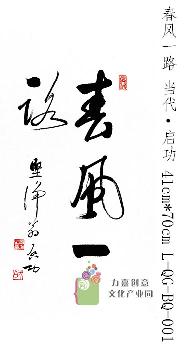 春風一
路
堅浄翁启功
力嘉创意
文化产业园
春风一路 当代·启功 41cm*70cm L-QG-BQ-001